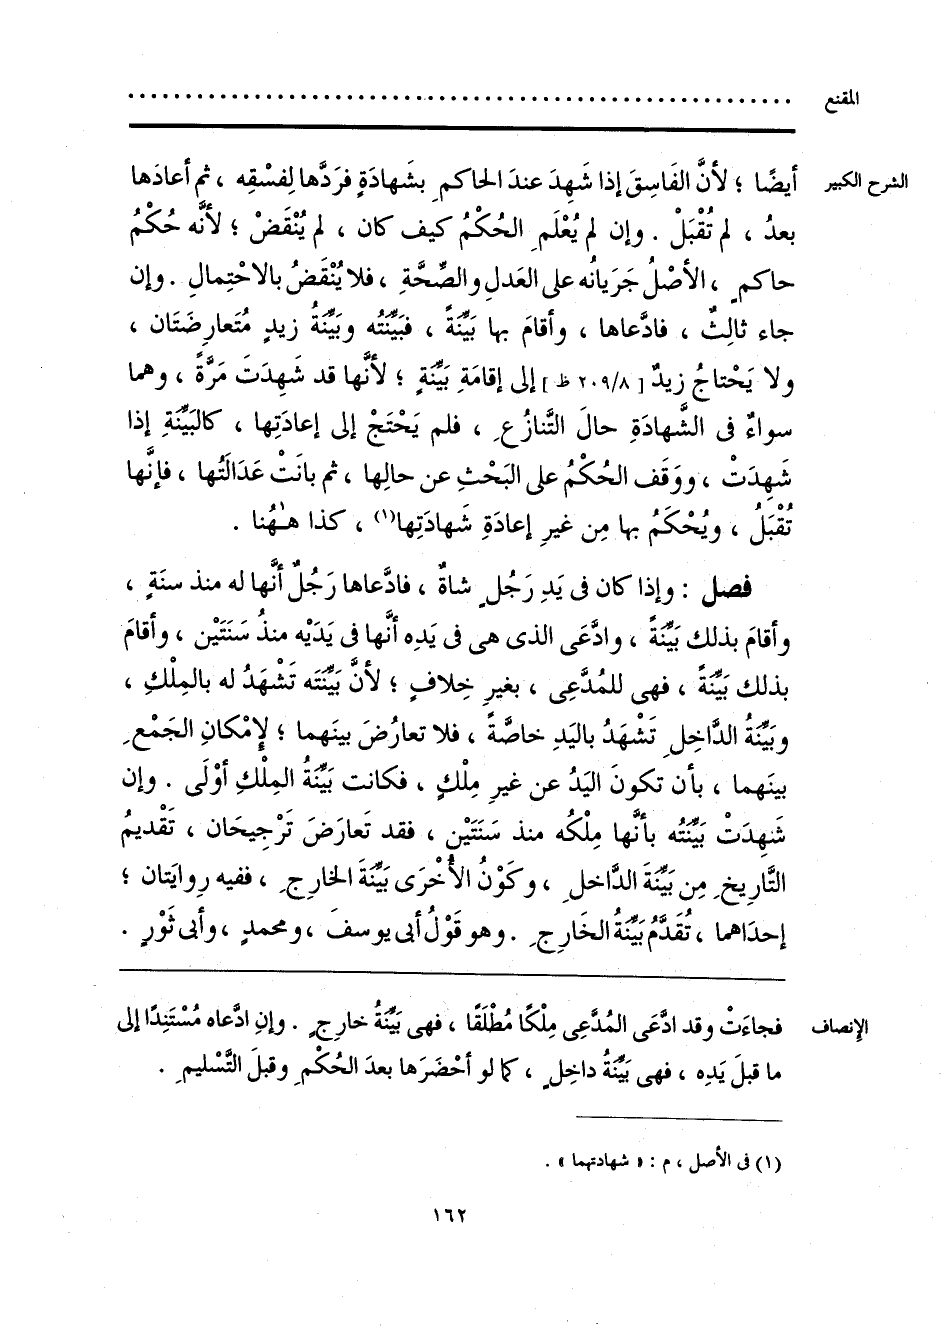 المقنع ................................................................
الشرح الكبير أيضًا ؛ لأنَّ الفَاسِقَ إذا شَهِدَ عندَ الحاكمِ بشَهادَةٍ فرَدَّها لِفسْقِه ، ثم أعادَها
بعدُ ، لم تُقْبَلْ . وإن لم يُعْلَمِ الحُكْمُ كيف كان ، لم يُنْقَضْ ؛ لأنَّه حُكْمُ
حاكمٍ ، الأصْلُ جَرَيانُه على العَدلِ والصِّحَّةِ ، فلا يُنْقَضُ بالاحْتِمالِ . وإن
جاء ثالِثٌ ، فادَّعاها ، وأقامَ بها بَيِّنَةً ، فبَيِّنَتُه وبَيِّنَةُ زيدٍ مُتَعارِضَتان ،
ولا يَحْتاجُ زيدٌ [ ٢٠٩/٨ ظ ] إلى إقامَةِ بَيِّنَةٍ ؛ لأنَّها قد شَهِدَتْ مَرَّةً ، وهما
سواءٌ فى الشَّهادَةِ حالَ التَّنازُعِ ، فلم يَحْتَجْ إلى إعادَتِها ، كالبَيِّنَةِ إذا
شَهِدَتْ ، ووَقَف الحُكْمُ على البَحْثِ عن حالِها ، ثم بانَتْ عَدَالَتُها ، فإنَّها
تُقْبَلُ ، ويُحْكَمُ بها مِن غيرِ إعادَةِ شَهادَتِها(١) ، كذا هـٰهُنا .
فصل : وإذا كان فى يَدِ رَجُلٍ شاةٌ ، فادَّعاها رَجُلٌ أنَّها له منذ سنَةٍ ،
وأقامَ بذلك بَيِّنَةً ، وادَّعَى الذى هى فى يَدِه أنَّها فى يَدَيْه منذُ سَنَتَيْن ، وأقامَ
بذلك بَيِّنَةً ، فهى للمُدَّعِى ، بغيرِ خِلافٍ ؛ لأنَّ بَيِّنَتَه تَشْهَدُ له بالمِلْكِ ،
وبَيِّنَةُ الدَّاخِلِ تَشْهَدُ باليَدِ خاصَّةً ، فلا تعارُضَ بينَهما ؛ لإِمْكانِ الجَمْعِ
بينَهما ، بأن تكونَ اليَدُ عن غيرِ مِلْكٍ ، فكانت بَيِّنَةُ المِلْكِ أوْلَى . وإن
شَهِدَتْ بَيِّنَتُه بأنَّها مِلْكُه منذ سَنَتَيْن ، فقد تَعارَضَ تَرْجِيحَان ، تَقْديمُ
التَّارِيخِ مِن بَيِّنَةِ الدَّاخلِ ، وكَوْنُ الأُخْرَى بَيِّنَةَ الخارِجِ ، ففيه رِوايَتان ؛
إحدَاهما ، تُقَدَّمُ بَيِّنَةُ الخَارِجِ . وهو قَوْلُ أبى يوسفَ ، ومحمدٍ ، وأبى ثَوْرٍ .
الإنصاف فجاءَتْ وقد ادَّعَى المُدَّعِى مِلْكًا مُطْلَقًا ، فهى بَيِّنَةُ خارِجٍ . وإنِ ادَّعاه مُسْتَنِدًا إلى
ما قبلَ يَدِه ، فهى بَيِّنَةُ داخِلٍ ، كما لو أحْضَرَها بعدَ الحُكْمِ وقبلَ التَّسْليمِ .
(١) فى الأصل ، م : « شهادتهما » .
١٦٢